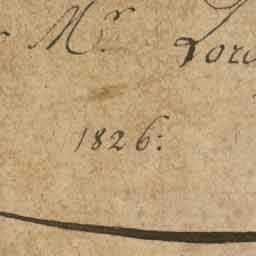 Mr Lord
1826: